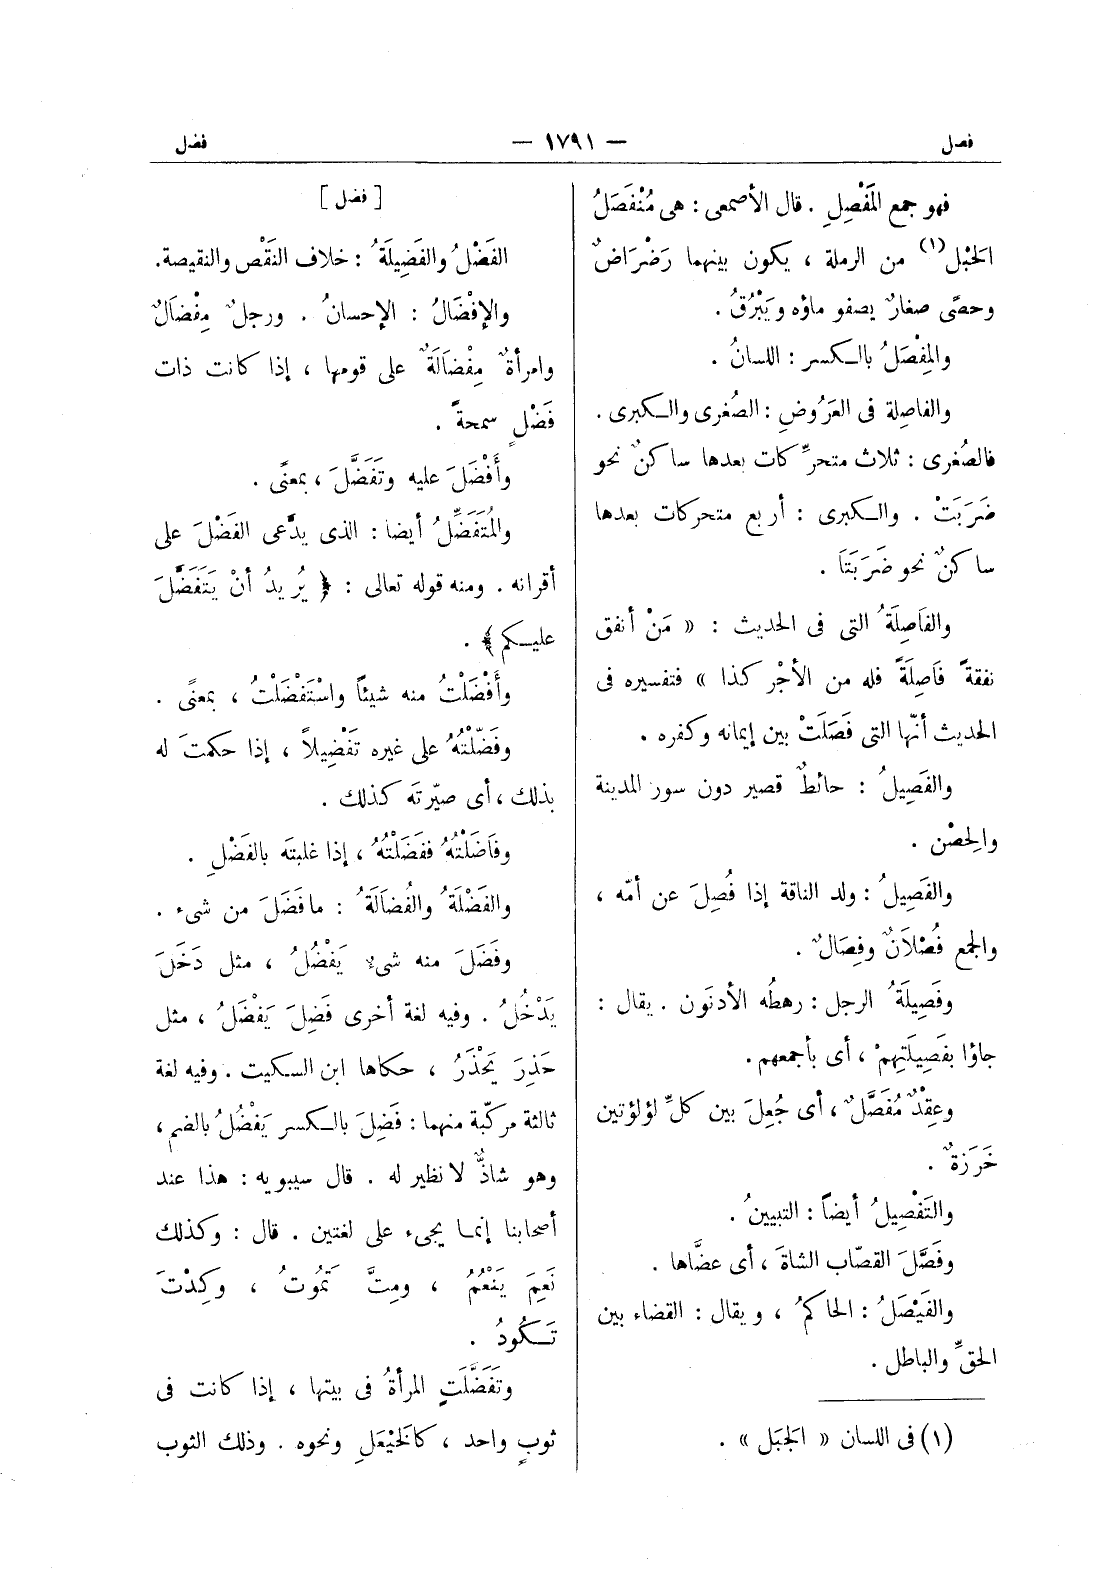 فصل — ١٧٩١ — فضل
فهو جمع المَفْصِلِ . قال الأصمعى : هى مُنْفَصَلُ
الحَبْل(١) من الرملة ، يكون بينهما رَضْرَاضٌ
وحصًى صغارٌ يصفو ماؤه ويَبْرُقُ .
والمِفْصَلُ بالكسر : اللسانُ .
والفاصِلة فى العَرُوضِ : الصُغرى والكبرى .
فالصُغرى : ثلاث متحرِّكات بعدها ساكنٌ نحو
ضَرَبَتْ . والكبرى : أربع متحركات بعدها
ساكنٌ نحو ضَرَبَتَا .
والفَاصِلَةُ التى فى الحديث : « مَنْ أنفق
نفقةً فَاصِلَةً فله من الأجْر كذا » فتفسيره فى
الحديث أنّها التى فَصَلَتْ بين إيمانه وكفره .
والفَصِيلُ : حائطٌ قصير دون سور المدينة
والحِصْن .
والفَصِيلُ : ولد الناقة إذا فُصِلَ عن أمّه ،
والجمع فُصْلَانٌ وفِصَالٌ .
وفَصِيلَةُ الرجل : رهطُه الأدنَون . يقال :
جاؤا بفَصِيلَتِهِمْ ، أى بأجمعهم .
وعِقْدٌ مُفَصَّلٌ ، أى جُعِلَ بين كلِّ لؤلؤتين
خَرَزةٌ .
والتَفْصِيلُ أيضاً : التبيينُ .
وفَصَّلَ القصّاب الشاةَ ، أى عضَّاها .
والفَيْصَلُ : الحاكمُ ، ويقال : القضاء بين
الحقِّ والباطل .
(١) فى اللسان « الجَبَل » .
[ فضل ]
الفَضْلُ والفَضِيلَةُ : خلاف النَقْص والنقيصة .
والإفْضَالُ : الإحسانُ . ورجلٌ مِفْضَالٌ
وامرأةٌ مِفْضَالَةٌ على قومها ، إذا كانت ذات
فَضْلٍ سمحةً .
وأَفْضَلَ عليه وتَفَضَّلَ ، بمعنًى .
والمُتَفَضِّلُ أيضا : الذى يدَّعى الفَضْلَ على
أقرانه . ومنه قوله تعالى : ﴿ يُرِيدُ أنْ يَتَفَضَّلَ
عليكم ﴾ .
وأَفْضَلْتُ منه شيئاً واسْتَفْضَلْتُ ، بمعنًى .
وفَضّلْتُهُ على غيره تَفْضِيلاً ، إذا حكمتَ له
بذلك ، أى صيّرتَه كذلك .
وفَاضَلْتُهُ ففَضَلْتُهُ ، إذا غلبتَه بالفَضْلِ .
والفَضْلَةُ والفُضَالَةُ : مافَضَلَ من شىء .
وفَضَلَ منه شىءٌ يَفْضُلُ ، مثل دَخَلَ
يَدْخُلُ . وفيه لغة أخرى فَضِلَ يَفْضَلُ ، مثل
حَذِرَ يَحْذَرُ ، حكاها ابن السكيت . وفيه لغة
ثالثة مركّبة منهما : فَضِلَ بالكسر يَفْضُلُ بالضم ،
وهو شاذٌّ لا نظير له . قال سيبويه : هذا عند
أصحابنا إنما يجىء على لغتين . قال : وكذلك
نَعِمَ يَنْعُمُ ، ومِتَّ تَمُوتُ ، وكِدْتَ
تَكُودُ .
وتَفَضَّلَتِ المرأةُ فى بيتها ، إذا كانت فى
ثوبٍ واحد ، كالخَيْعَلِ ونحوه . وذلك الثوب